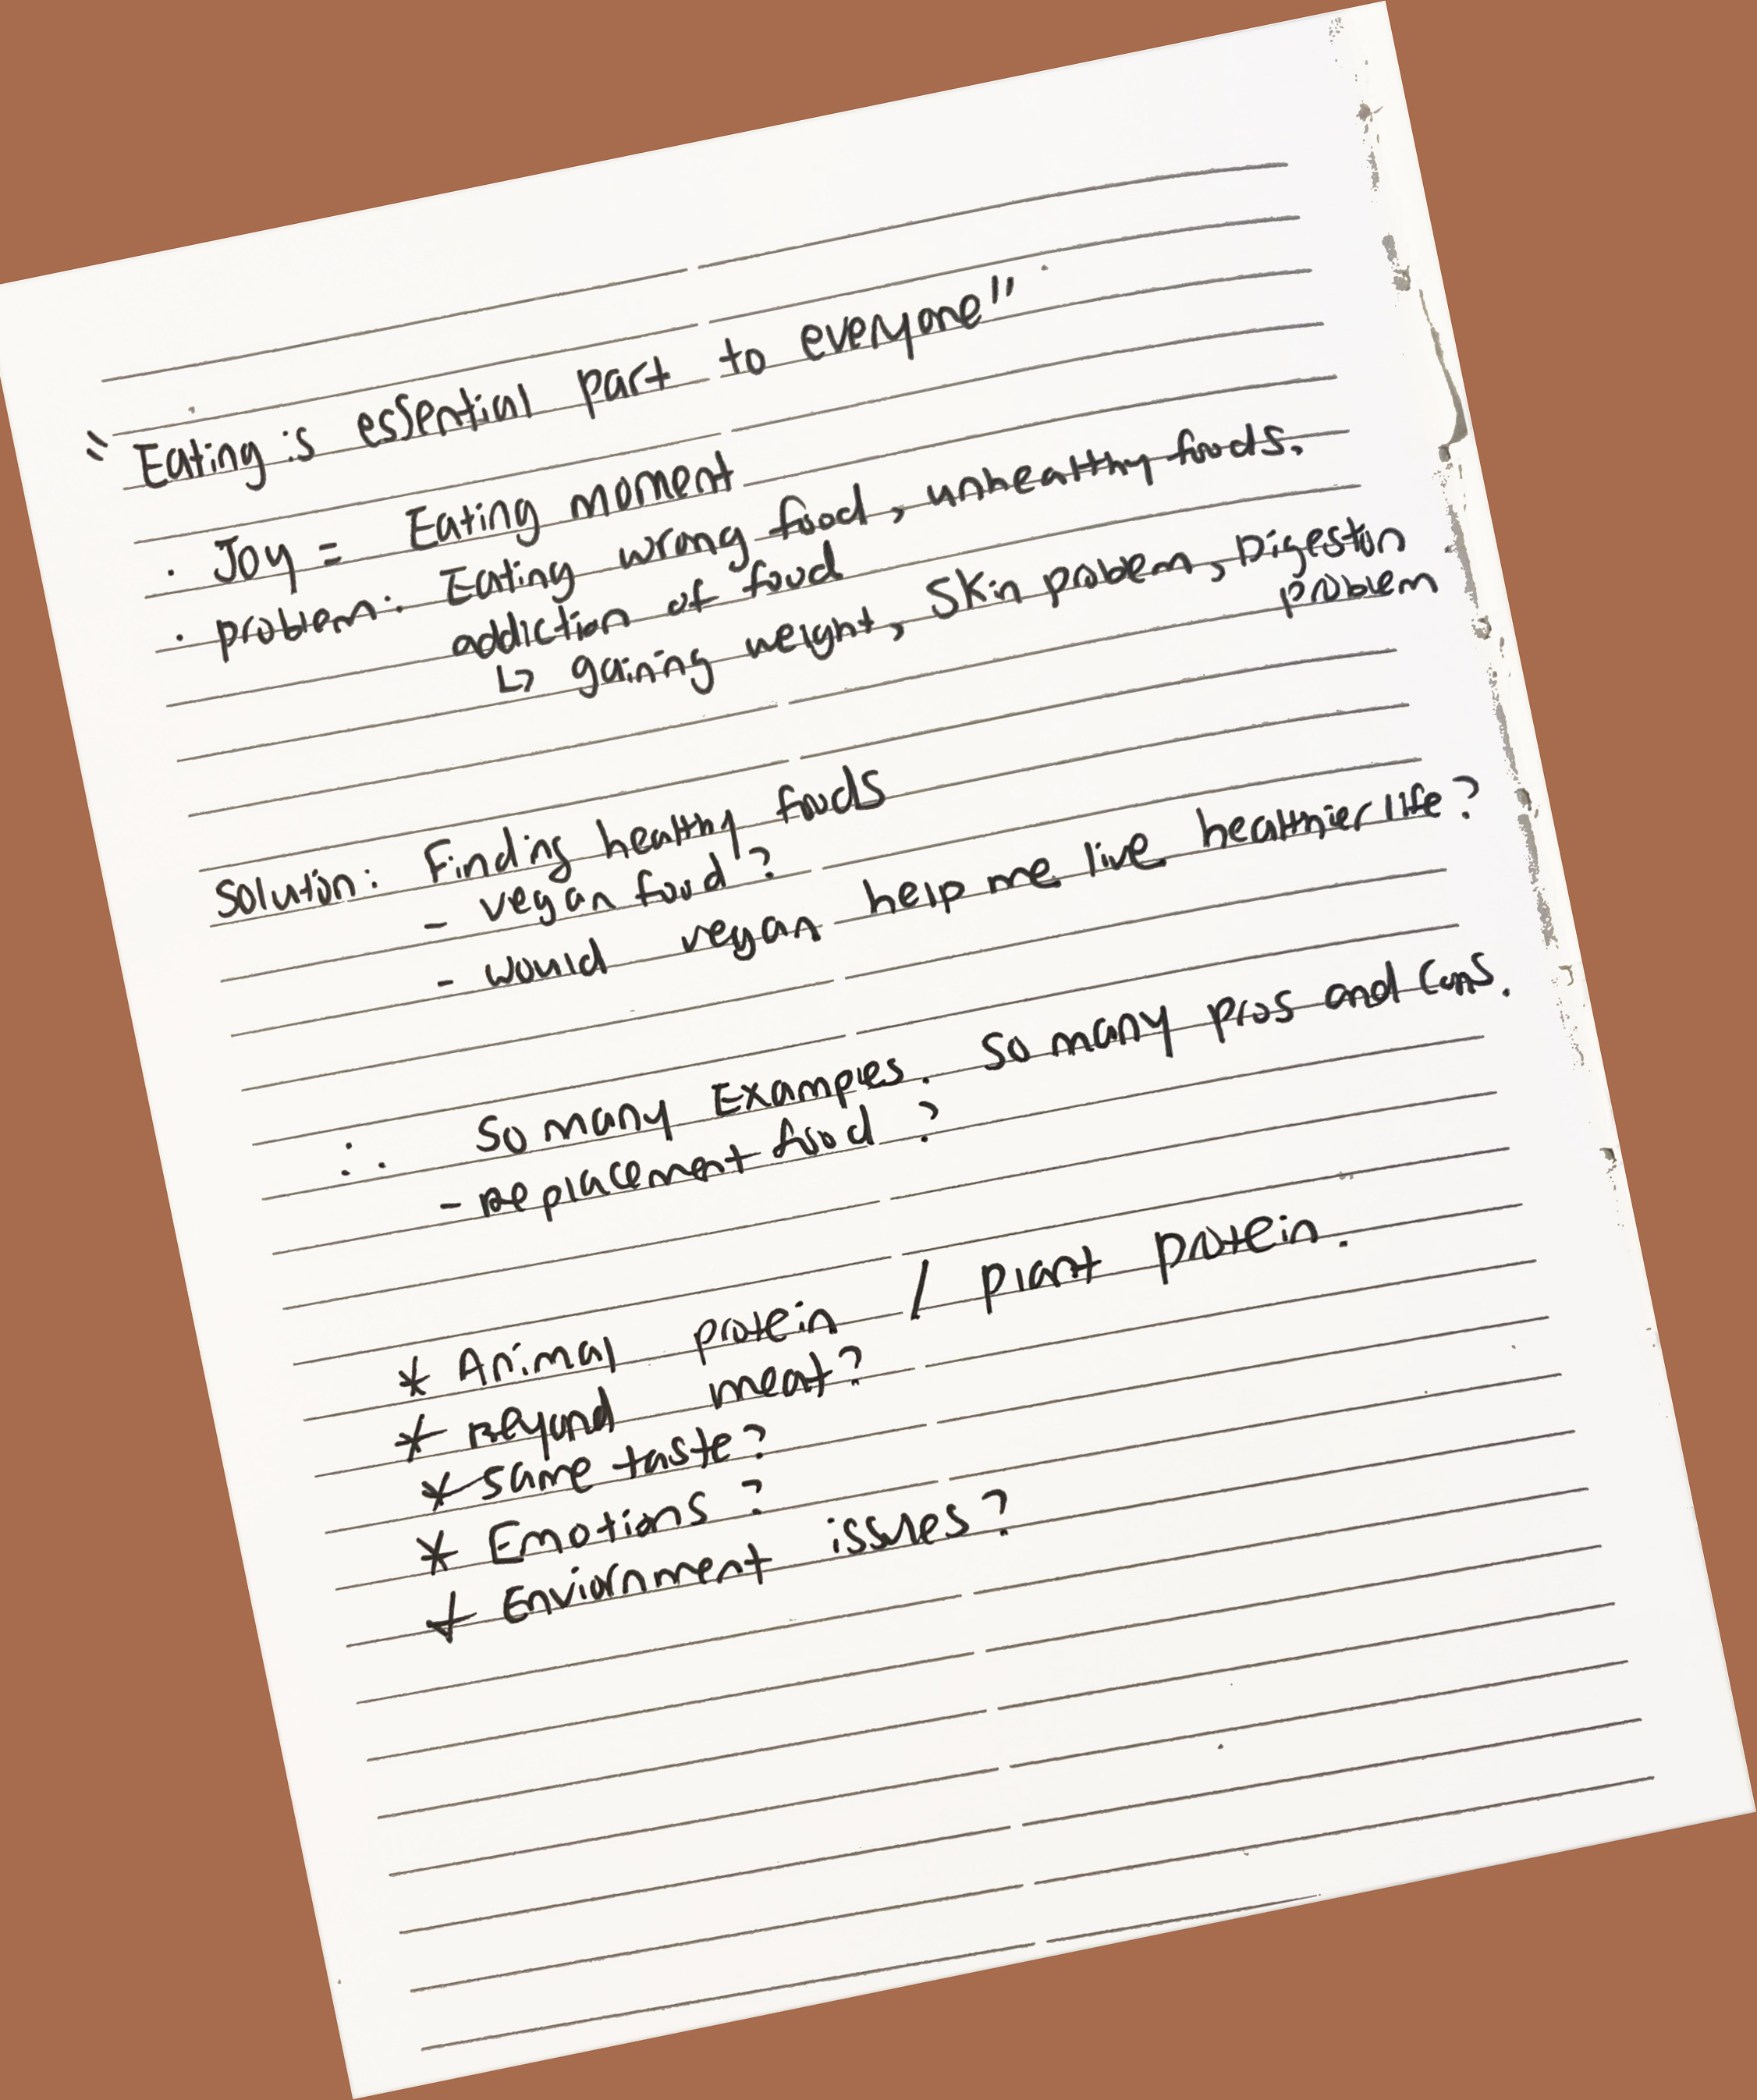 "Eating is essential part to everyone"
· Joy = Eating moment
· problem: Eating wrong food, unhealthy foods.
addiction of food
↳ gaining weight, Skin problem, Digestion problem
Solution: Finding healthy foods
- vegan food?
- would vegan help me live healthier life?
∴ So many Examples. So many pros and cons.
- Replacement food?
* Animal protein / plant protein.
* Beyond meat?
* same taste?
* Emotions?
* Enviornment issues?